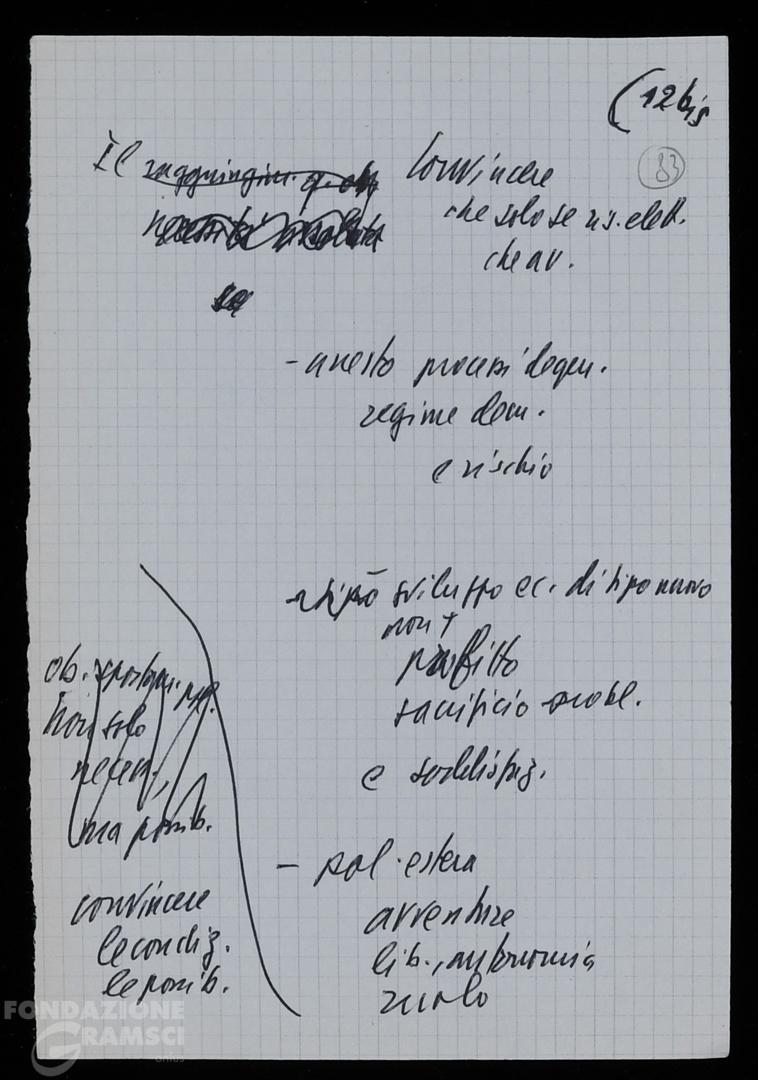 (12 bis
83
Il raggiungim. q. ob.
necessità assoluta
Convincere
che solo se ris. elett.
che av.
- arresto processi degen.
regime dem.
e rischio
sviluppo ec. di tipo nuovo
non +
profitto
sacrificio
e soddisfaz.
- pol. estera
avventure
lib., autonomia
ruolo
ob.
non solo
necess.,
ma possib.
convincere
le condiz.
le possib.
FONDAZIONE
GRAMSCI
onlus